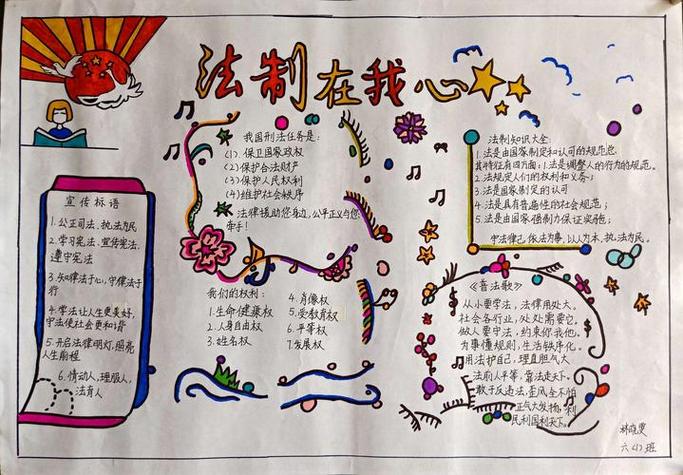 法制在我心
宣传标语
1.公正司法、执法为民
2.学习宪法、宣传宪法、
遵守宪法
3.知律法于心,守律法于
行
4.学法让人生更美好,
守法使社会更和谐
5.开启法律明灯,照亮
人生前程
6.情动人,理服人,
法育人
我国刑法任务是:
(1).保卫国家政权
(2)保护合法财产
(3)保护人民权利
(4)维护社会秩序
法律援助您身边,公平正义与您
牵手!
我们的权利:
1.生命健康权
2.人身自由权
3.姓名权
4.肖像权
5.受教育权
6.平等权
7.发展权
法制知识大全:
1.法是由国家制定和认可的规范总
其特征有四方面:1.法是调整人的行为的规范。
2.法规定人们的权利和义务;
3.法是国家制定的认可
4.法是具有普遍性的社会规范;
5.法是由国家强制力保证实施;
守法律己,依法为事,以人为本,执法为民。
《普法歌》
从小要学法,法律用处大。
社会各行业,处处需要它。
做人要守法,约束你我他。
为事懂规则,生活秩序化。
用法护自己,理直胆气大
法前人平等,靠法走天下。
敢于反违法,歪风全不怕
正气大发扬,利
民利国利天下。
林
六(1)班